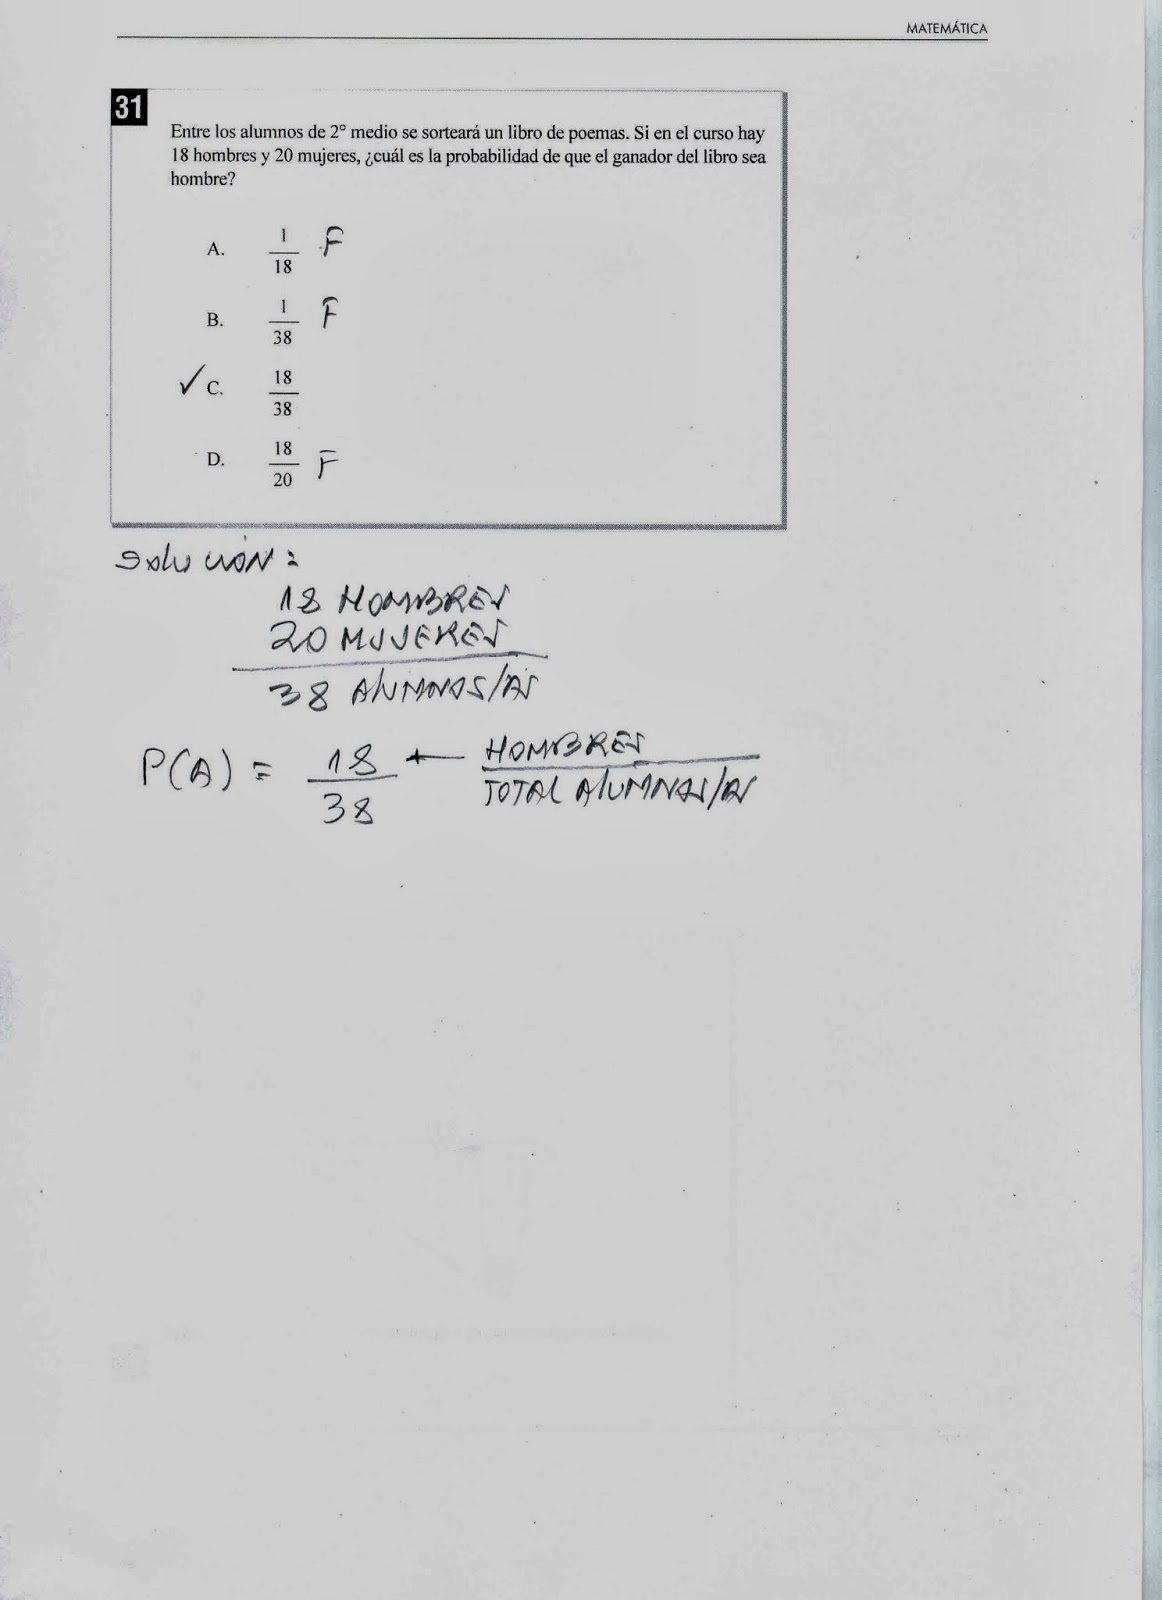 MATEMÁTICA
31
Entre los alumnos de 2° medio se sorteará un libro de poemas. Si en el curso hay
18 hombres y 20 mujeres, ¿cuál es la probabilidad de que el ganador del libro sea
hombre?
A. 1/18 F
B. 1/38 F
✓ C. 18/38
D. 18/20 F
SOLUCIÓN:
18 HOMBRES
20 MUJERES
38 ALUMNOS/AS
P(A) = 18/38 ← HOMBRES/TOTAL ALUMNAS/AS